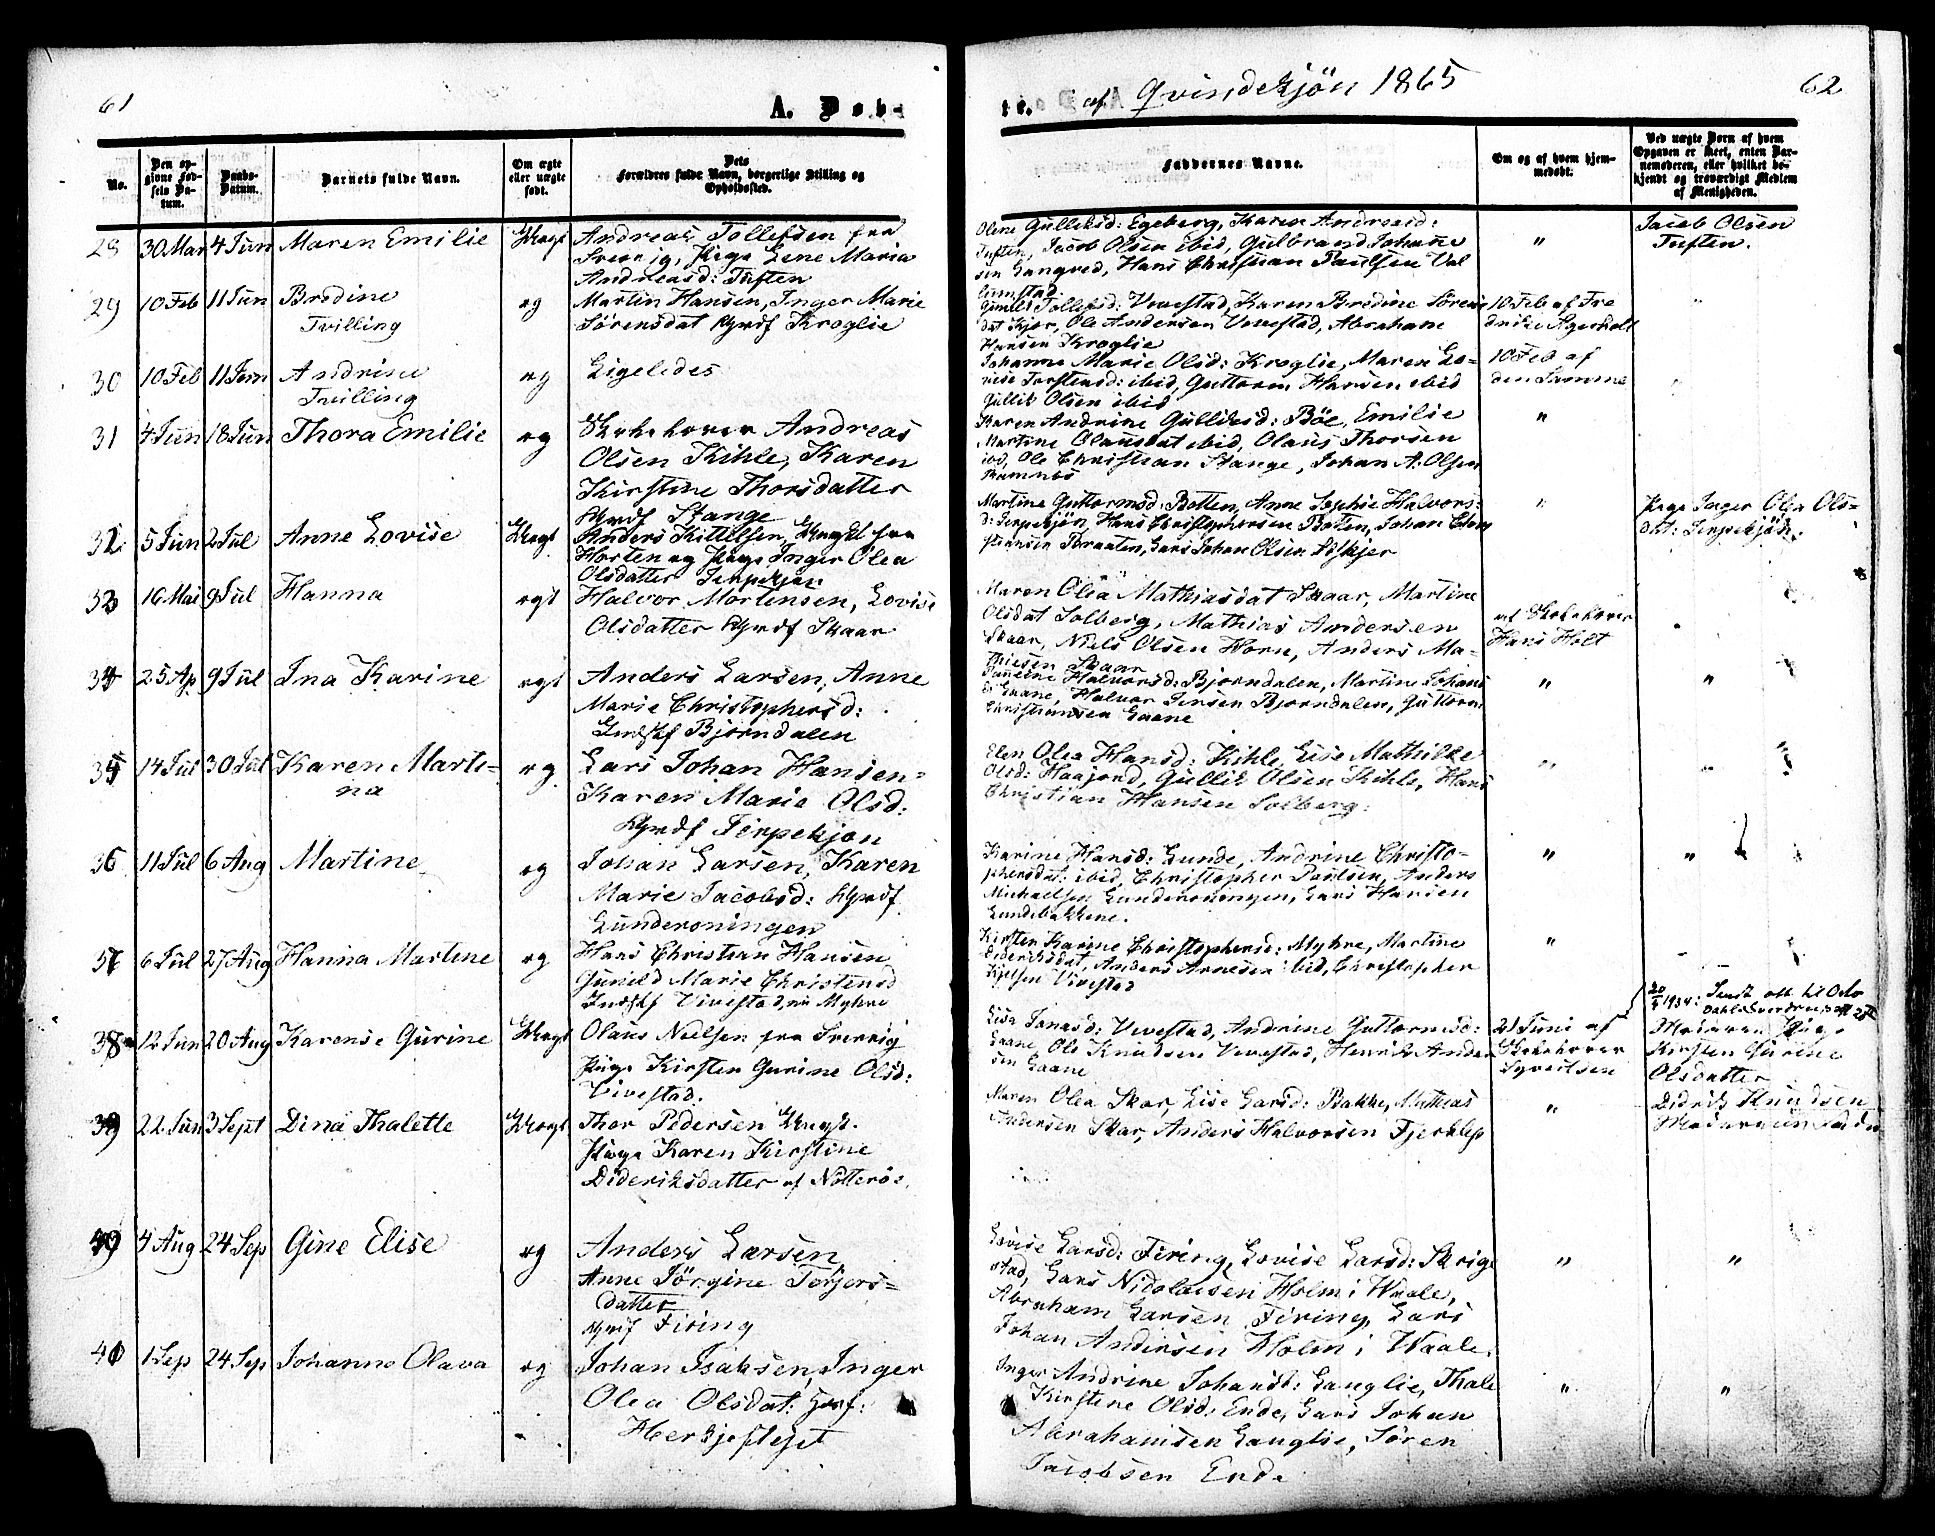 61
A. Døbe
No.
Den opgivne Fødsels Datum.
Daabs-Datum.
Barnets fulde Navn.
Om ægte eller uægte født.
Dets Forældres fulde Navn, borgerlige Stilling og Opholdssted.
28 30 Mar 4 Jun Maren Emilie Uægt Andreas Tollefsen fra
Sverrig, Pige Lene Maria
Andreasd: Tuften
29 10 Feb 11 Jun Bredine æg Martin Hansen, Inger Marie
Tvilling Sörensdat Kroglie
30 10 Feb 11 Jun Andrine æg Ligeledes
Tvilling
31 4 Jun 18 Jun Thora Emilie æg Andreas
Olsen Kihle, Karen
Kirstine Thorsdatter
Stange
32 5 Jun 2 Jul Anne Lovise Uægt Anders Kittelsen, Ungkl fra
Horten og Pige Inger Olea
Olsdatter
33 16 Mai 9 Jul Hanna ægt Halvor Mortensen, Lovise
Olsdatter Skaar
34 25 Ap 9 Jul Ina Karine ægt Anders Larsen, Anne
Marie Christophersd:
Bjorndalen
35 14 Jul 30 Jul Karen Marti-
na æg Lars Johan Hansen
Karen Marie Olsd:
36 11 Jul 6 Aug Martine æg Johan Larsen, Karen
Marie Jacobsd:
37 6 Jul 27 Aug Hanna Martine æg Hans Christian Hansen
Gunild Marie Christensd
Vivestad, nu Myhre
38 12 Jun 20 Aug Karense Gurine Uægt Olaus Neelsen fra Sverrig
Pige Kirsten Gurine Olsd:
Vivestad.
39 22 Jun 3 Sept Dina Thalette Uægt Thor Pedersen Ungk.
Pige Karen Kirstine
Dideriksdatter af Nötterö.
40 4 Aug 24 Sep Gine Elise æg Anders Larsen
Anne Jörgine Torjers-
datter
Firing
41 1 Sep 24 Sep Johanne Olava æg Johan Isaksen, Inger
Olea Olsdat:
te. af Qvindekjön 1865
62
Faddernes Navne.
Om og af hvem hjemmedøbt.
Ved uægte Born af hvem Opgaven er skeet, enten Barnemoderen, eller hvilket bekjendt og troværdigt Medlem af Menigheden.
Olene Gulliksd: Egeberg, Karen Andreasd:
Tuften, Jacob Olsen ibid, Gulbrand Johanne
sen Langved, Hans Christian Paulsen
" Jacob Olsen
Tuften.
Gunild Tollefsd: Vevestad, Karen Bredine Sörens
dat Kjær, Ole Andersen Vevestad, Abraham
Hansen Kroglie
10 Feb af Fre
drike Agerholt
"
Johanne Marie Olsd: Kroglie, Maren Lo-
vise Torstensd: ibid, Guttorm Hansen ibid
Gullik Olsen ibid
10 Feb af
den Samme
"
Karen Andrine Gulliksd: Böe, Emilie
Martine Olausdat ibid, Olaus Thorsen
ibd, Ole Christian Stange, Johan A. Olsen
Ramnes
"
Martine Guttormsd: Botten, Anne Sophie Halvors-
Hans Christophersen Botten, Johan
Lars Johan Olsen
" Pige Inger Olea Ols-
dat:
Maren Olea Mathiasdat Skaar, Martine
Olsdat Solberg, Mathias Andersen
Skaar, Niels Olsen Horn, Anders Ma-
thiesen Skaar
af
Hans Holt
"
Halvorsd: Bjorndalen, Martine Johans
d Gaane, Halvor Jensen Bjorndalen, Guttorm
Christiansen Gaane
" "
Elen Olea Hansd: Kihle, Lise Mathilde
Olsd: Haajord, Gullik Olsen Kihle, Hans
Christian Hansen Solberg.
" "
Karine Hansd: Lunde, Andrine Christo-
phersdat: ibid, Christopher Paulsen, Anders
Michaelsen Lars Hansen
Lundebakkene.
" "
Kirsten Karine Christophersd: Myhre, Martine
Dideriksdat, Anders Arnesen ibid, Christopher
Kjelsen Vivestad
"
1934: Sendt att. til Oslo
Lisa Jonasd: Vevestad, Andrine Guttormsd:
Gaane Ole Knudsen Vevestad, Henrik Ander
sen Gaane
21 Juni af
Syvertsen
Moderen Pige
Kirsten Gurine
Olsdatter
Maren Olea Skar, Lise Larsd: Bakke, Mathias
Andersen Skar, Anders Halvorsen
" Didrik Knudsen
Lovise Larsd: Firing, Lovise Larsd:
stad, Lars Nicolaisen Holm i Waale,
Abraham Larsen Firing, Lars
Johan Andersen Holm i Waale.
" "
Inger Andrine Johansd: Langlie, Thale
Kirstine Olsd: Ende, Lars Johan
Abrahamsen Langlie, Sören
Jacobsen Ende
" "